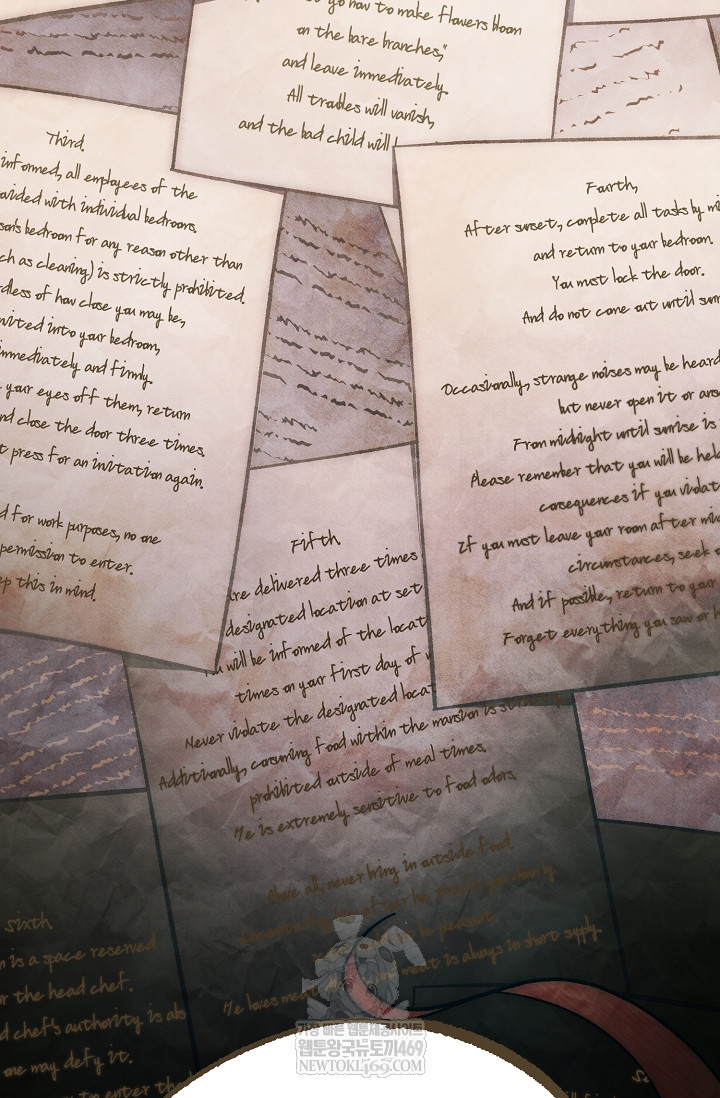 go now to make flowers bloom
on the bare branches,"
and leave immediately.
All troubles will vanish,
and the bad child will
Third.
informed, all employees of the
with individual bedrooms.
bedroom for any reason other than
as cleaning) is strictly prohibited.
of how close you may be,
into your bedroom,
immediately and firmly.
your eyes off them, return
close the door three times.
press for an invitation again.
for work purposes, no one
permission to enter.
this in mind.
Fourth,
After sunset, complete all tasks by
and return to your bedroom.
You must lock the door.
And do not come out until
Occasionally, strange noises may be heard
but never open it or
From midnight until sunrise is
Please remember that you will be
consequences if you
If you must leave your room after
circumstances, seek
And if possible, return to your
Forget everything you saw or
Fifth.
are delivered three times
designated location at set
will be informed of the
times on your first day of
Never violate the designated
Additionally, consuming food within the mansion is
prohibited outside of meal times.
He is extremely sensitive to food odors.
Above all, never bring in outside food
be pleasant.
He loves meat, and meat is always in short supply.
Sixth
is a space reserved
the head chef.
chef's authority is
one may defy it.
to enter the
가장 빠른 웹툰제공사이트
웹툰왕국뉴토끼469
NEWTOKI469.COM